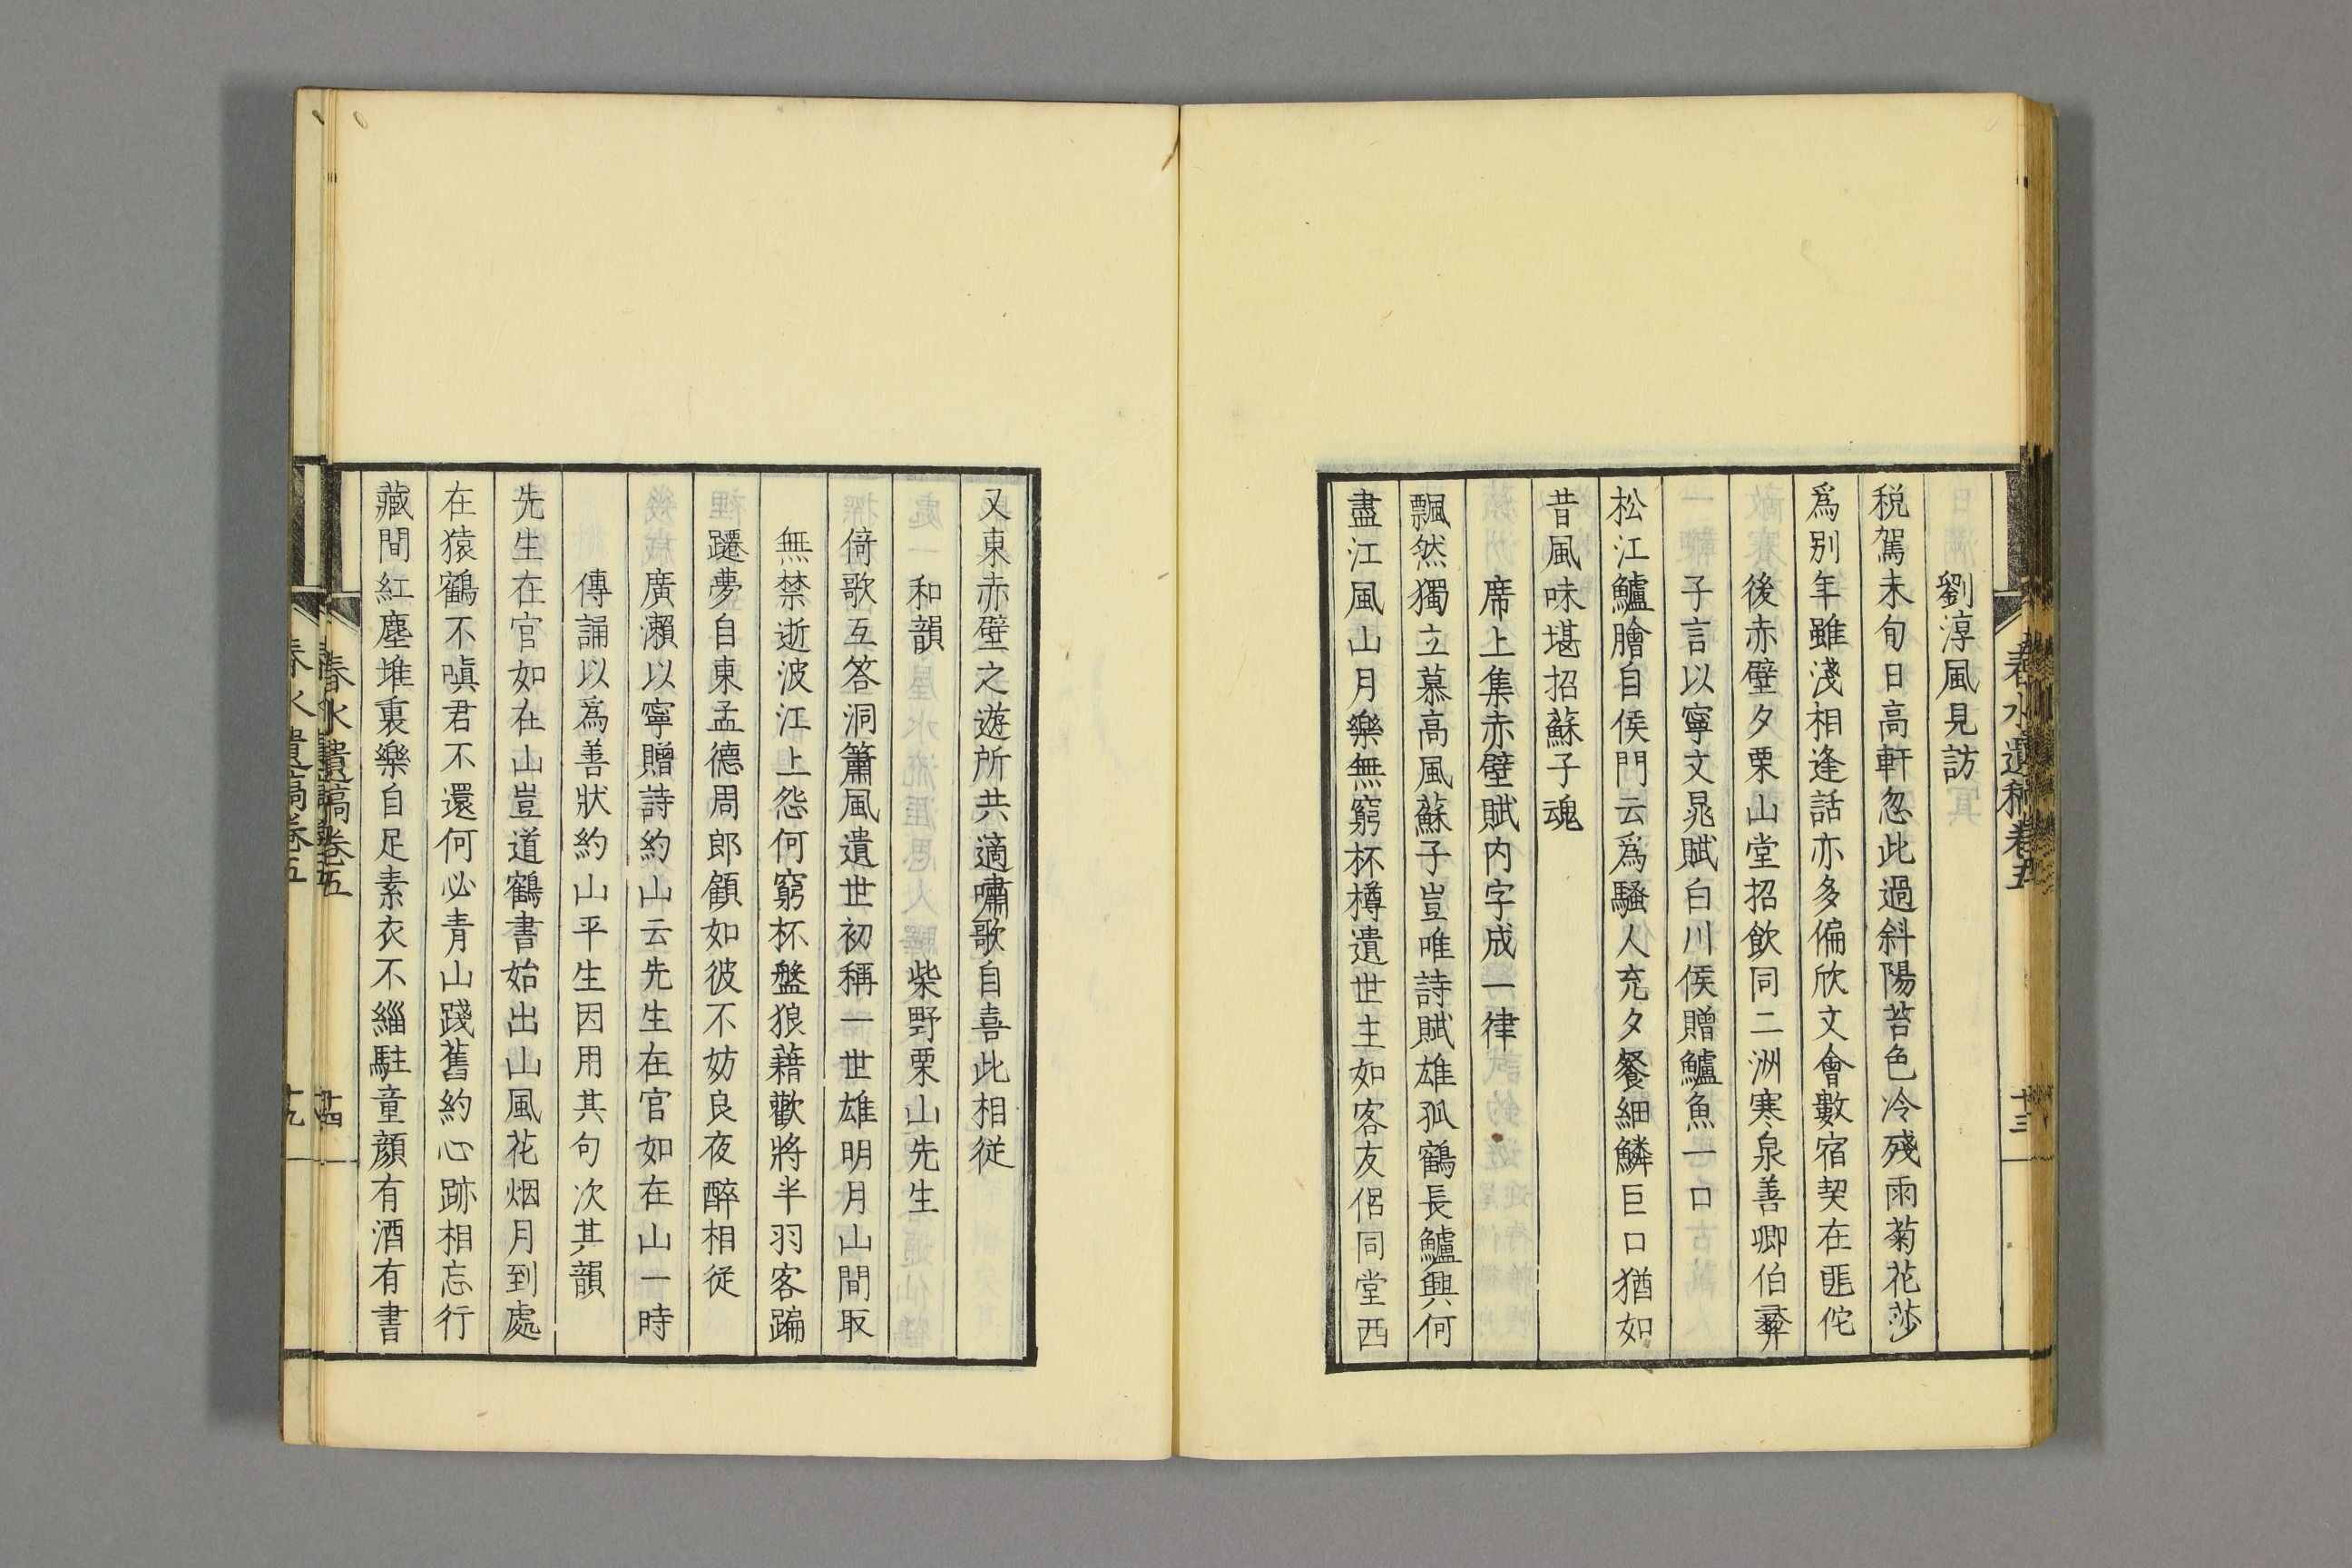 劉淳風見訪
税駕未旬日高軒忽此過斜陽苔色冷殘雨菊花莎
爲別年雖淺相逢話亦多偏欣文會數宿契在匪佗
後赤壁夕栗山堂招飲同二洲寒泉善卿伯彜
子言以寧文晁賦白川侯贈鱸魚一口
松江鱸膾自侯門云爲騷人充夕餐細鱗巨口猶如
昔風味堪招蘇子魂
席上集赤壁賦内字成一律
飄然獨立慕高風蘇子豈唯詩賦雄孤鶴長鱸興何
盡江風山月樂無窮杯樽遺世主如客友侶同堂西
春水遺稿卷五
十三
又東赤壁之遊所共適嘯歌自喜此相從
和韻 柴野栗山先生
倚歌互答洞簫風遺世初稱一世雄明月山間取
無禁逝波江上怨何窮杯盤狼藉歡將半羽客蹁
躚夢自東孟德周郎顧如彼不妨良夜醉相從
廣瀬以寧贈詩約山云先生在官如在山一時
傳誦以爲善狀約山平生因用其句次其韻
先生在官如在山豈道鶴書始出山風花烟月到處
在猿鶴不嗔君不還何必青山踐舊約心跡相忘行
藏間紅塵堆裏樂自足素衣不緇駐童顔有酒有書
春水遺稿卷五
十四
春水遺稿卷五